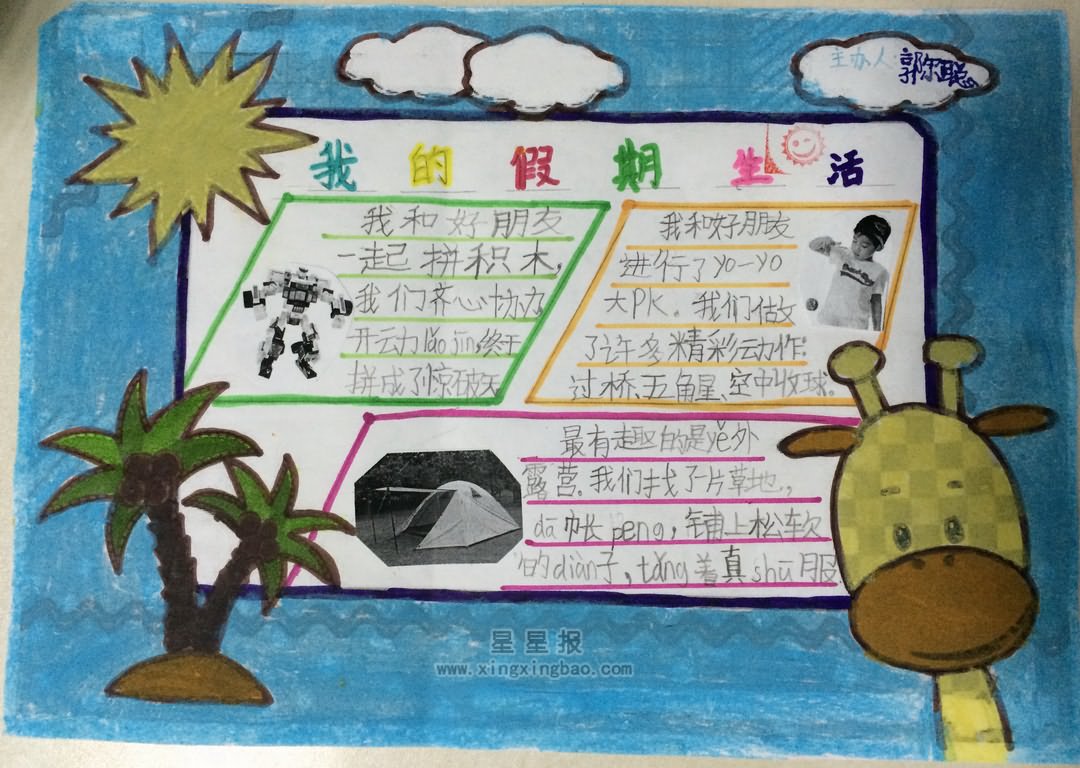 主办人:郭尔聪
我的假期生活
我和好朋友
一起拼积木,
我们齐心协力
开云力lǎo jīn,终于
拼成了惊破天
我和好朋友
进行了yo-yo
大PK。我们做
了许多精彩云力作:
过桥、五角星、空中收球。
最有趣的是yě外
露营。我们找了一片草地,,
dā帐peng,铺上松软
的diàn子,tǎng着真shū服
星星报
www.xingxingbao.com